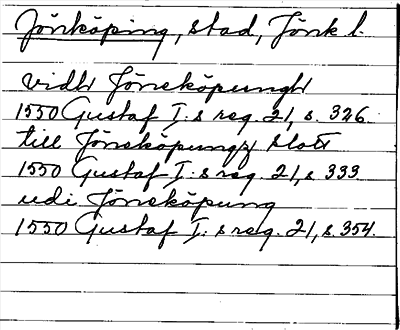 Jönköping, stad, Jönk l.
vidh Jöneköpungh
1550 Gustaf I:s reg. 21, s. 326.
till Jöneköpungz slott
1550 Gustaf I:s reg. 21, s 333
udi Jöneköpung
1550 Gustaf I:s reg. 21, s. 354.